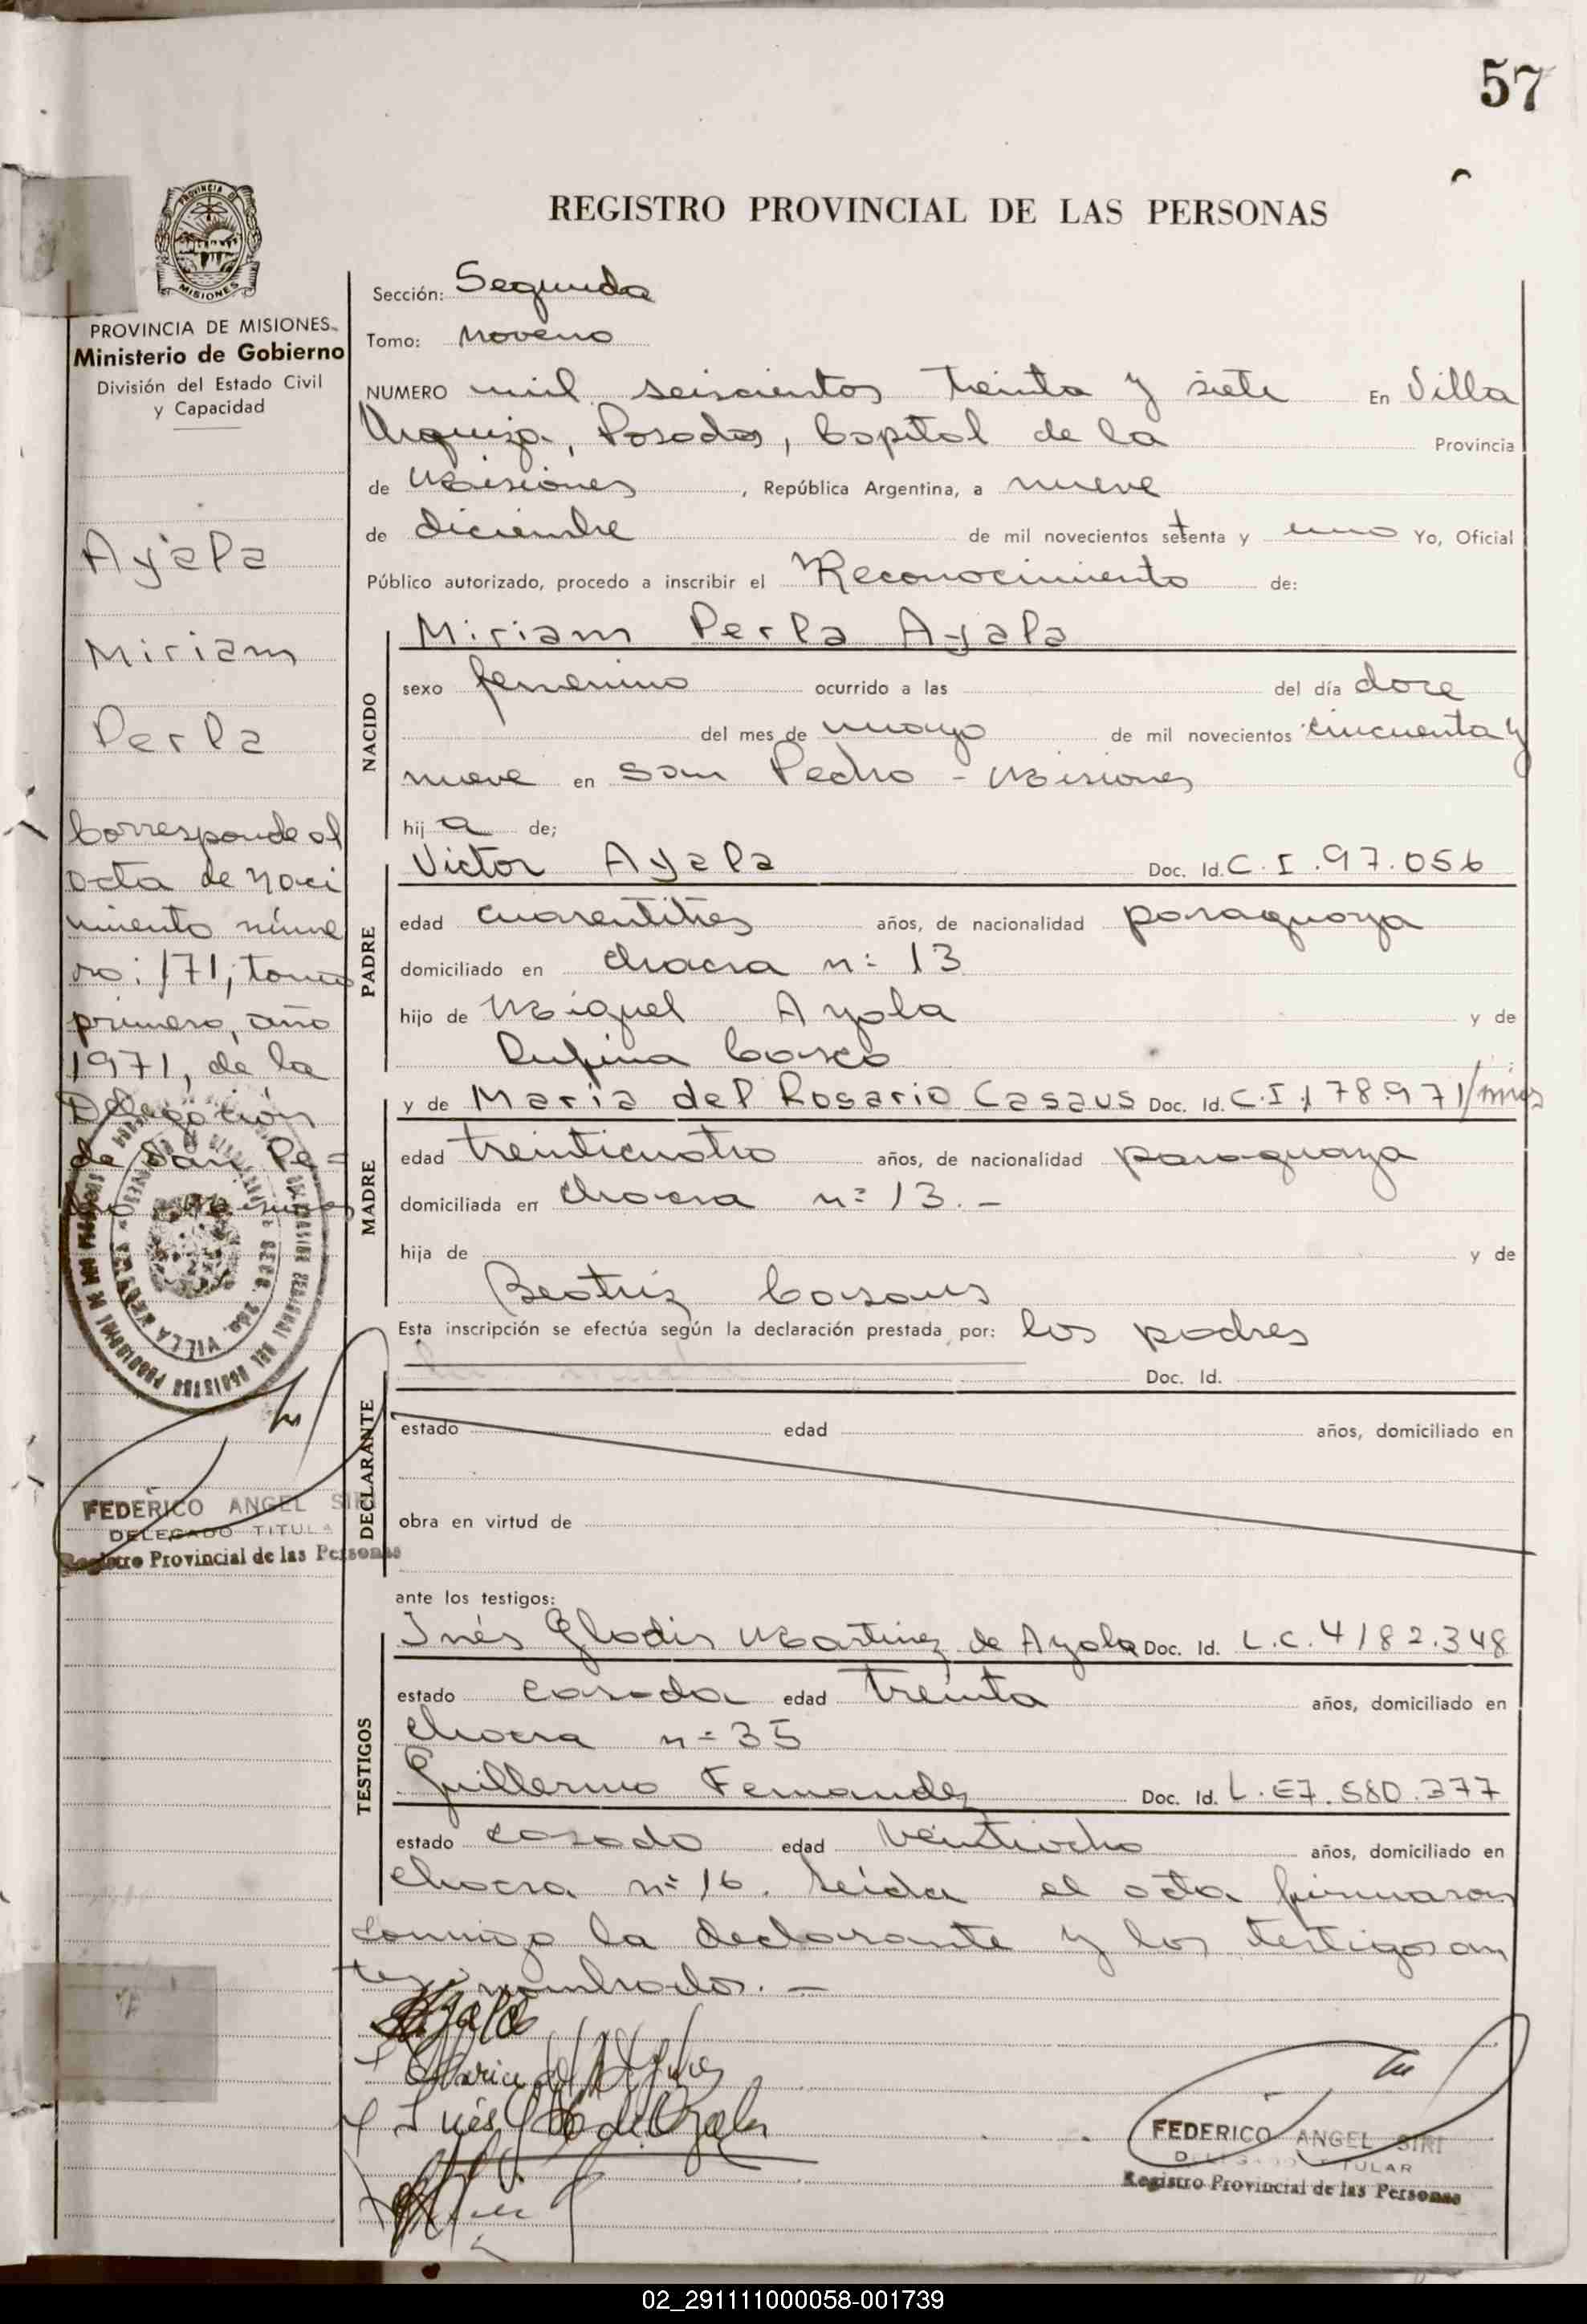 57
REGISTRO PROVINCIAL DE LAS PERSONAS
PROVINCIA DE MISIONES
Ministerio de Gobierno
División del Estado Civil
y Capacidad
Ayala
Miriam
Perla
Corresponde al
acta de naci
miento núme
ro: 171, tomo
primero, año
1971, de la
Delegación
de San Pe=
FEDERICO ANGEL SIRI
DELEGADO TITULA
Registro Provincial de las Personas
Sección: Segunda
Tomo: Noveno
NUMERO mil seiscientos treinta y siete En Villa
Urquiza, Posadas, Capital de la Provincia
de Misiones, República Argentina, a nueve
de diciembre de mil novecientos setenta y uno Yo, Oficial
Público autorizado, procedo a inscribir el Reconocimiento de:
NACIDO
Miriam Perla Ayala
sexo femenino ocurrido a las del día doce
del mes de mayo de mil novecientos cincuenta y
nueve en San Pedro - Misiones
hij a de;
PADRE
Victor Ayala Doc. Id. C.I. 97.056
edad cuarentitres años, de nacionalidad paraguaya
domiciliado en chacra n: 13
hijo de Miguel Ayala y de
Rufina Casco
MADRE
y de Maria del Rosario Casaus Doc. Id. C.I. 178.971/mnes
edad treinticuatro años, de nacionalidad paraguaya
domiciliada en chacra n: 13. -
hija de y de
Beatriz Casaus
Esta inscripción se efectúa según la declaración prestada por: los padres
Doc. Id.
DECLARANTE
estado edad años, domiciliado en
obra en virtud de
ante los testigos:
TESTIGOS
Inés Gladis Martinez de Ayala Doc. Id. L.C. 4182.348
estado casada edad treinta años, domiciliado en
chacra n: 35
Guillermo Fernandez Doc. Id. L.E 7.580.377
estado casado edad veintiocho años, domiciliado en
chacra n: 16. Leída el acta firmaron
conmigo la declarante y los testigos an
tes nombrados. -
Ayala
Inés G de Ayala
FEDERICO ANGEL SIRI
TITULAR
Registro Provincial de las Personas
02_291111000058-001739